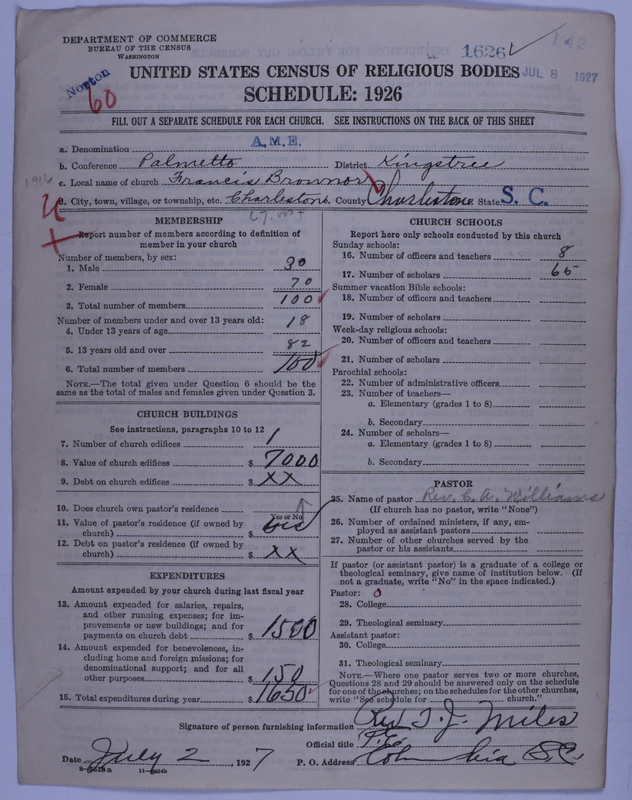 DEPARTMENT OF COMMERCE
BUREAU OF THE CENSUS
WASHINGTON
1626
142
Norton
60
JUL 8 1927
UNITED STATES CENSUS OF RELIGIOUS BODIES
SCHEDULE: 1926
FILL OUT A SEPARATE SCHEDULE FOR EACH CHURCH. SEE INSTRUCTIONS ON THE BACK OF THIS SHEET
a. Denomination A.M.E.
b. Conference Palmetto District Kingstree
1916
c. Local name of church Francis Brown
d. City, town, village, or township, etc. Charleston County Charleston State S. C.
MEMBERSHIP
Report number of members according to definition of
member in your church
Number of members, by sex:
1. Male 30
2. Female 70
3. Total number of members 100
Number of members under and over 13 years old:
4. Under 13 years of age 18
5. 13 years old and over 82
6. Total number of members 100
NOTE.—The total given under Question 6 should be
same as the total of males and females given under Question 3.
CHURCH BUILDINGS
See instructions, paragraphs 10 to 12
7. Number of church edifices 1
8. Value of church edifices $ 7000
9. Debt on church edifices $ XX
10. Does church own pastor's residence
Yes or No
11. Value of pastor's residence (if owned by
church) $
12. Debt on pastor's residence (if owned by
church) $ XX
EXPENDITURES
Amount expended by your church during last fiscal year
13. Amount expended for salaries, repairs,
and other running expenses; for im-
provements or new buildings; and for
payments on church debt $ 1500
14. Amount expended for benevolences, in-
cluding home and foreign missions; for
denominational support; and for all
other purposes $ 150
15. Total expenditures during year $ 1650
CHURCH SCHOOLS
Report here only schools conducted by this church
Sunday schools:
16. Number of officers and teachers 8
17. Number of scholars 65
Summer vacation Bible schools:
18. Number of officers and teachers
19. Number of scholars
Week-day religious schools:
20. Number of officers and teachers
21. Number of scholars
Parochial schools:
22. Number of administrative officers
23. Number of teachers—
a. Elementary (grades 1 to 8)
b. Secondary
24. Number of scholars—
a. Elementary (grades 1 to 8)
b. Secondary
PASTOR
25. Name of pastor Rev. C. A. Williams
(If church has no pastor, write "None")
26. Number of ordained ministers, if any, em-
ployed as assistant pastors
27. Number of other churches served by the
pastor or his assistants
If pastor (or assistant pastor) is a graduate of a college or
theological seminary, give name of institution below. (If
not a graduate, write "No" in the space indicated.)
Pastor: 0
28. College
29. Theological seminary
Assistant pastor:
30. College
31. Theological seminary
NOTE.—Where one pastor serves two or more churches,
Questions 28 and 29 should be answered only on the schedule
for one of the churches; on the schedules for the other churches,
write "See schedule for church."
Signature of person furnishing information Rev T. J. Miles
Official title P.E.
Date July 2, 1927 P. O. Address Columbia S.C.